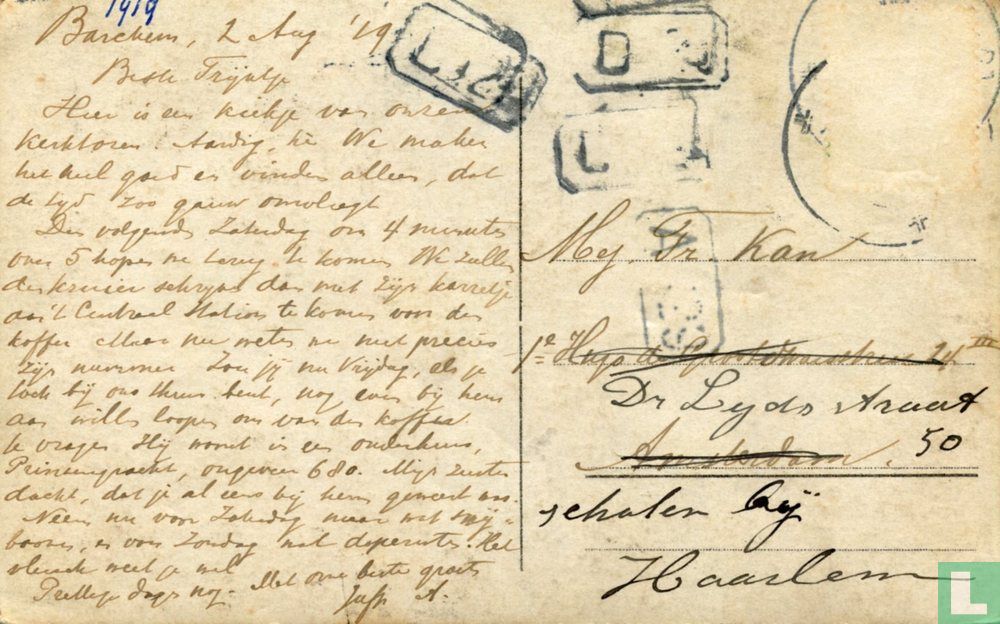 1919
Barchem, 2 Aug '19
Beste Trijntje
Hier is een kiekje van onzen
kerktoren. Aardig, hè We maken
het heel goed en vinden alleen, dat
de tijd zoo gauw omvliegt
Den volgende Zaterdag om 4 minuten
over 5 hopen we terug te komen We zullen
den kruier schrijven dan met zijn karretje
aan 't Centraal Station te komen voor den
koffer Maar nu weten we niet precies
zijn nummer Zou jij nu Vrijdag, als je
toch bij ons thuis bent, nog even bij hem
aan willen loopen om van den koffer
te vragen Hij woont in een onderhuis,
Prinsengracht, ongeveer 680. Mijn zuster
dacht, dat je al eens bij hem geweest was.
Neem nu voor Zaterdag maar wat
boonen, en voor Zondag wat doperwten. Het
vleesch weet je wel
Prettige dagen nog. Met onze beste groeten
Juffr A.
L.
D
L A
Mej. Tr. Kan
1e Hugo de Grootstraat 24 III
Dr Leyds straat
50
Amsterdam.
schoten bij
Haarlem
L